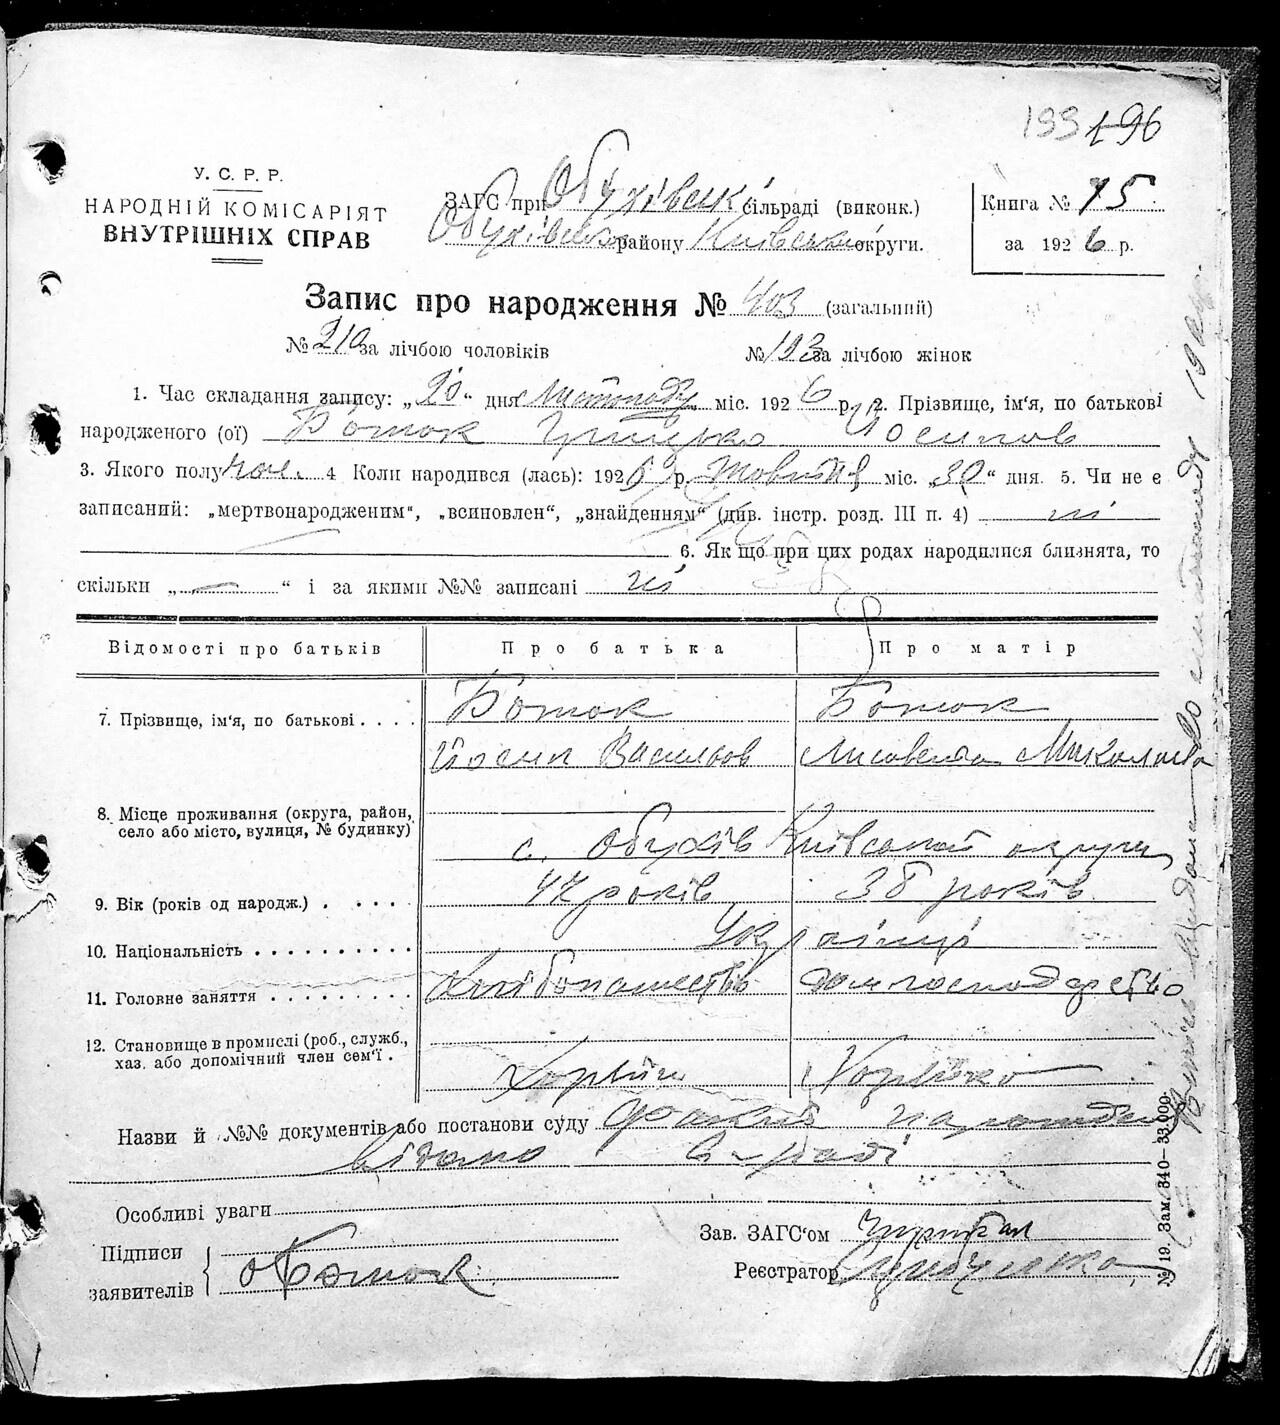 199 196
У. С. Р. Р.
НАРОДНІЙ КОМІСАРІЯТ
ВНУТРІШНІХ СПРАВ
ЗАГС при Обухівськ. сільраді (виконк.)
Обухівськ. району Київськ. округи.
Книга № 15
за 1926 р.
Запис про народження № 403 (загальний)
№ 210 за лічбою чоловіків № 193 за лічбою жінок
1. Час складання запису: „20“ дня листопаду міс. 1926 р. 2. Прізвище, ім'я, по батькові
народженого (ої) Ботюк Грицько Йосипов
3. Якого полу чол. 4 Коли народився (лась): 1926 р. жовтня міс. „30“ дня. 5. Чи не є
записаний: „мертвонародженим“, „всиновлен“, „знайденням“ (див. інстр. розд. III п. 4) ні
6. Як що при цих родах народилися близнята, то
скільки „ — “ і за якими №№ записані ні
Відомості про батьків Про батька Про матір
7. Прізвище, ім'я, по батькові . . . . Ботюк Ботюк
Йосип Васильов Лисавета Миколаєва
8. Місце проживання (округа, район,
село або місто, вулиця, № будинку)
с. Обухів Київської округи
9. Вік (років од народж.) . . . . . 47 років 38 років
10. Національність . . . . . . . . . . Українці
11. Головне заняття . . . . . . . . . Хлібопашество домгосподарство
12. Становище в промислі (роб., служб.,
хаз. або допомічний член сем'ї .
Хазяїн Хазяйка
Назви й №№ документів або постанови суду факт народження
відомо сільраді
Особливі уваги
Підписи
заявителів
Ботюк
Зав. ЗАГС'ом
Реєстратор
№ 19. Зам. 340—33.000.